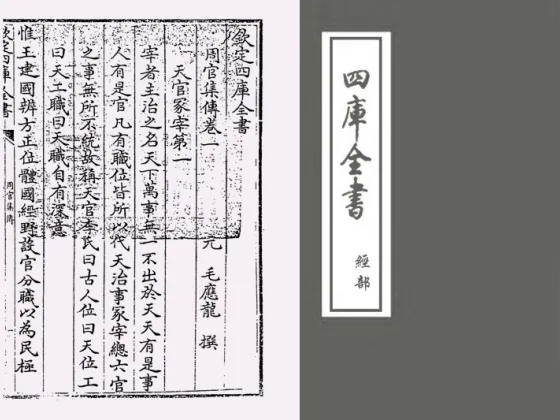 欽定四庫全書
周官集傳卷一
元 毛應龍 撰
天官冢宰第一
宰者主治之名天下萬事無一不出於天天有是事
人有是官凡有職位皆所以代天治事冢宰總六官
之事無所不統故稱天官李氏曰古人位曰天位工
曰天工職曰天職自有深意
惟王建國辨方正位體國經野設官分職以為民極
欽定四庫全書
周官集傳
四庫全書
經部